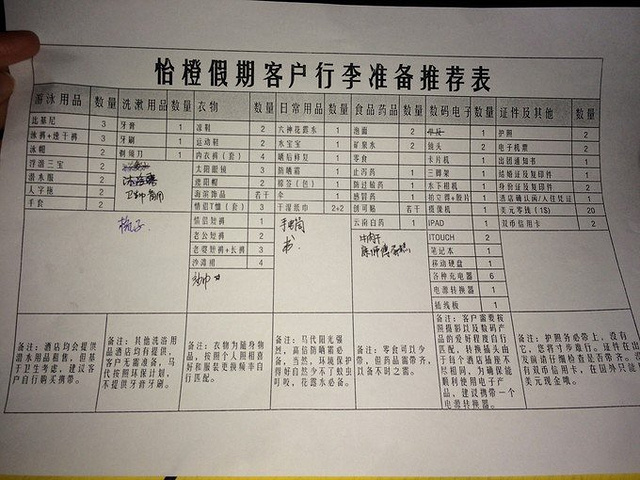 怡橙假期客户行李准备推荐表
游泳用品 数量 洗漱用品 数量 衣物 数量 日常用品 数量 食品药品 数量 数码电子 数量 证件及其他 数量
比基尼 3 牙膏 1 凉鞋 2 六神花露水 1 泡面 2 1 护照 2
泳裤+速干裤 3 牙刷 1 运动鞋 2 水宝宝 1 矿泉水 2 镜头 2 电子机票 2
泳帽 2 剃须刀 1 内衣裤(套) 4 晒后修复 1 零食 卡片机 1 出团通知书 1
浮潜三宝 2 太阳眼镜 3 防晒霜 1 止泻药 1 三脚架 1 结婚证及复印件 1
潜水服 2 遮阳帽 2 棉签(包) 1 防过敏药 1 水下相机 1 身份证及复印件 2
人字拖 2 卫生巾 备用 海岛饰品 若干 伞 1 感冒药 1 拍立得+胶片 1 酒店确认函/入住凭证 1
手套 2 情侣T恤(套) 3 干湿纸巾 2+2 创可贴 若干 摄像机 1 美元零钱(1S) 20
梳子 情侣短裤 1 手电筒 云南白药 1 IPAD 1 双币信用卡 2
老公短裤 2 书 牛肉干 ITOUCH 2
老婆短裤+长裤 3 笔记本 1
沙滩裙 4 移动硬盘 1
纱巾 各种充电器 6
电源转换器 1
插线板 1
备注:酒店均会提供潜水用品租售,但基于卫生考虑,建议客户自行购买携带。
备注:其他洗浴用品酒店均有提供,客户无需准备,马代按照环保计划,不提供牙膏牙刷。
备注:衣物为随身物品,按照个人照相喜好和服装更换频率自行匹配。
备注:马代阳光强烈,高倍防晒霜必备。当然,环境保护得好自然少不了蚊虫叮咬,花露水必备。
备注:零食可以少带,但药品需带齐,以备不时之需。
备注:客户需要按照摄影以及数码产品的爱好程度自行匹配,转换插头由于每个酒店插座不尽相同,为确保能顺利使用电子产品,建议携带一个电源转换器。
备注:护照务必带上,没有它,您将寸步难行。证件在出发前请仔细检查是否带齐。没有双币信用卡,在国外只能用美元现金哦。